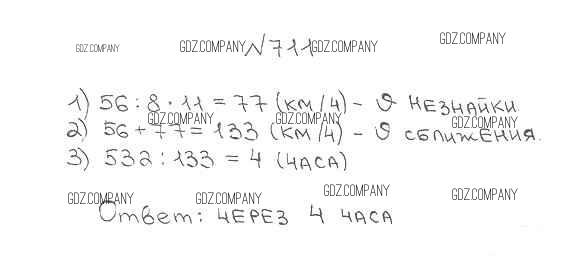 GDZ.COMPANY GDZ.COMPANY №711 GDZ.COMPANY GDZ.COMPANY
1) 56 : 8 · 11 = 77 (км/ч) – υ НЕЗНАЙКИ
GDZ.COMPANY GDZ.COMPANY GDZ.COMPANY
2) 56 + 77 = 133 (км/ч) – υ СБЛИЖЕНИЯ.
3) 532 : 133 = 4 (ЧАСА)
GDZ.COMPANY GDZ.COMPANY GDZ.COMPANY GDZ.COMPANY
Ответ: ЧЕРЕЗ 4 ЧАСА